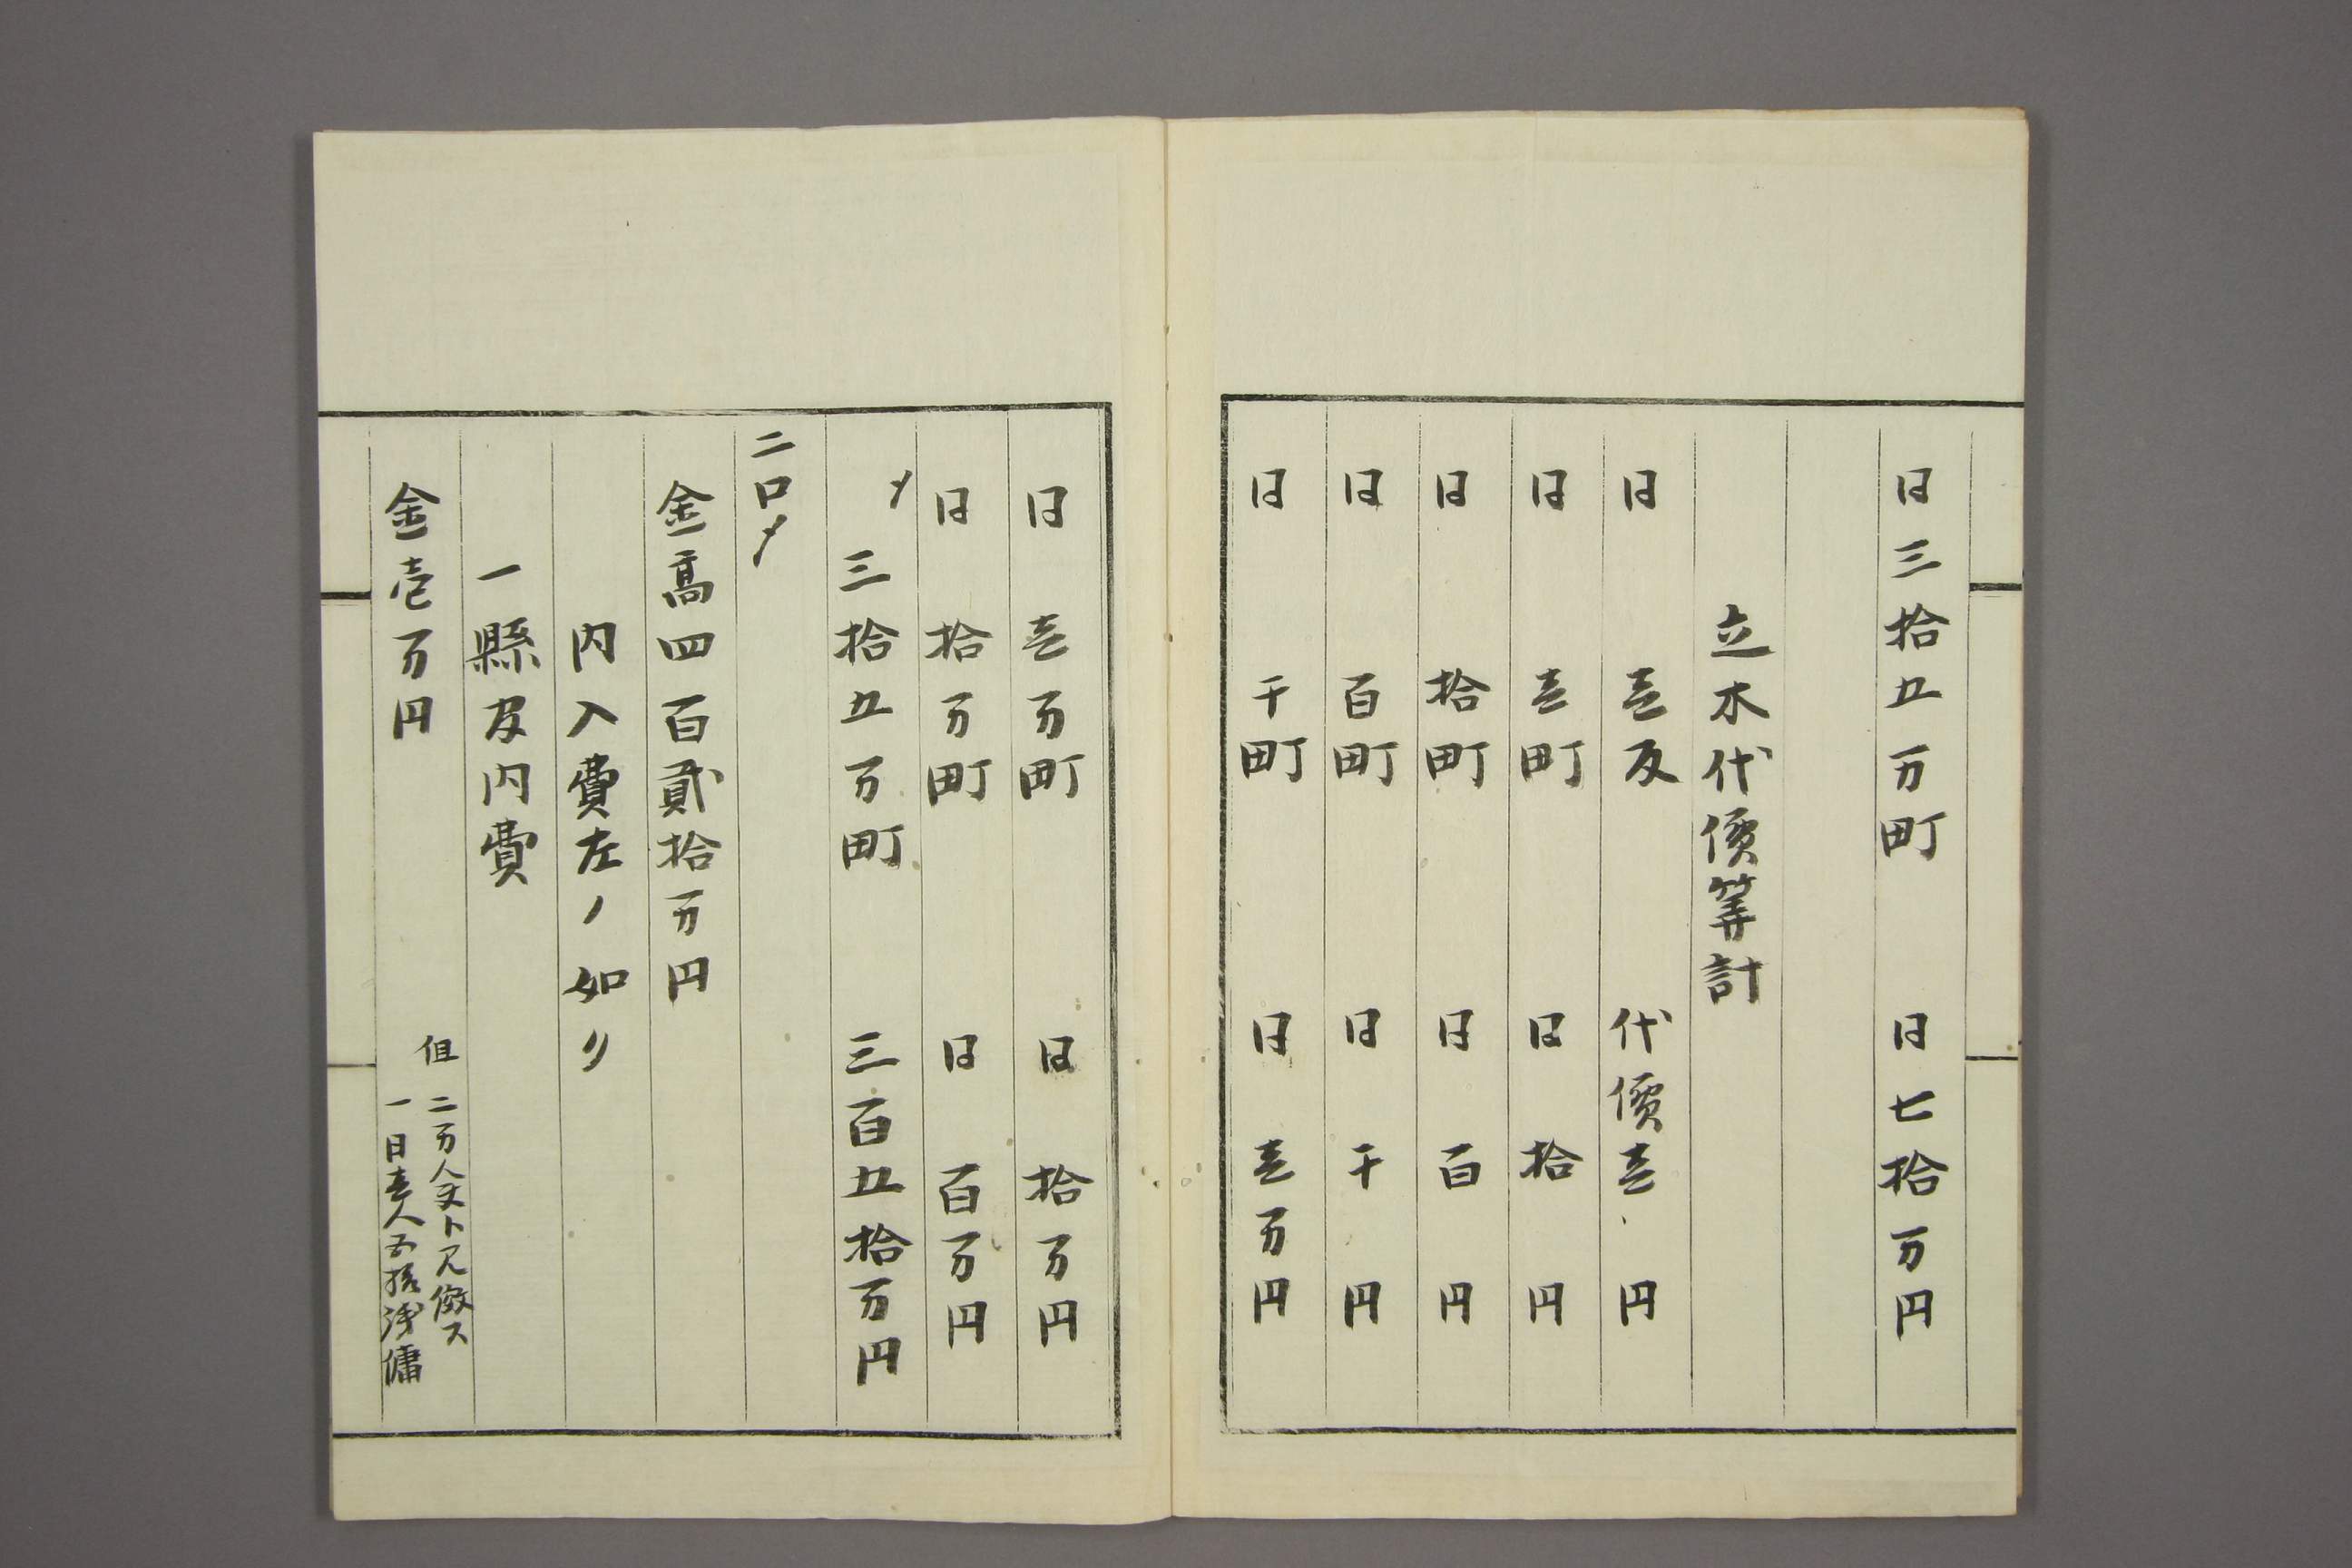 仝三拾五万町 仝七拾万円
立木代價筭計
仝 壱反 代價壱円
仝 壱町 仝 拾円
仝 拾町 仝 百円
仝 百町 仝 千円
仝 千町 仝 壱万円
仝 壱万町 仝 拾万円
仝 拾万町 仝 百万円
〆 三拾五万町 三百五拾万円
二口〆
金高四百貳拾万円
内入費左ノ如リ
一縣及内費
金壱万円
但 二万人夫ト見做ス
一日壱人五拾銭傭